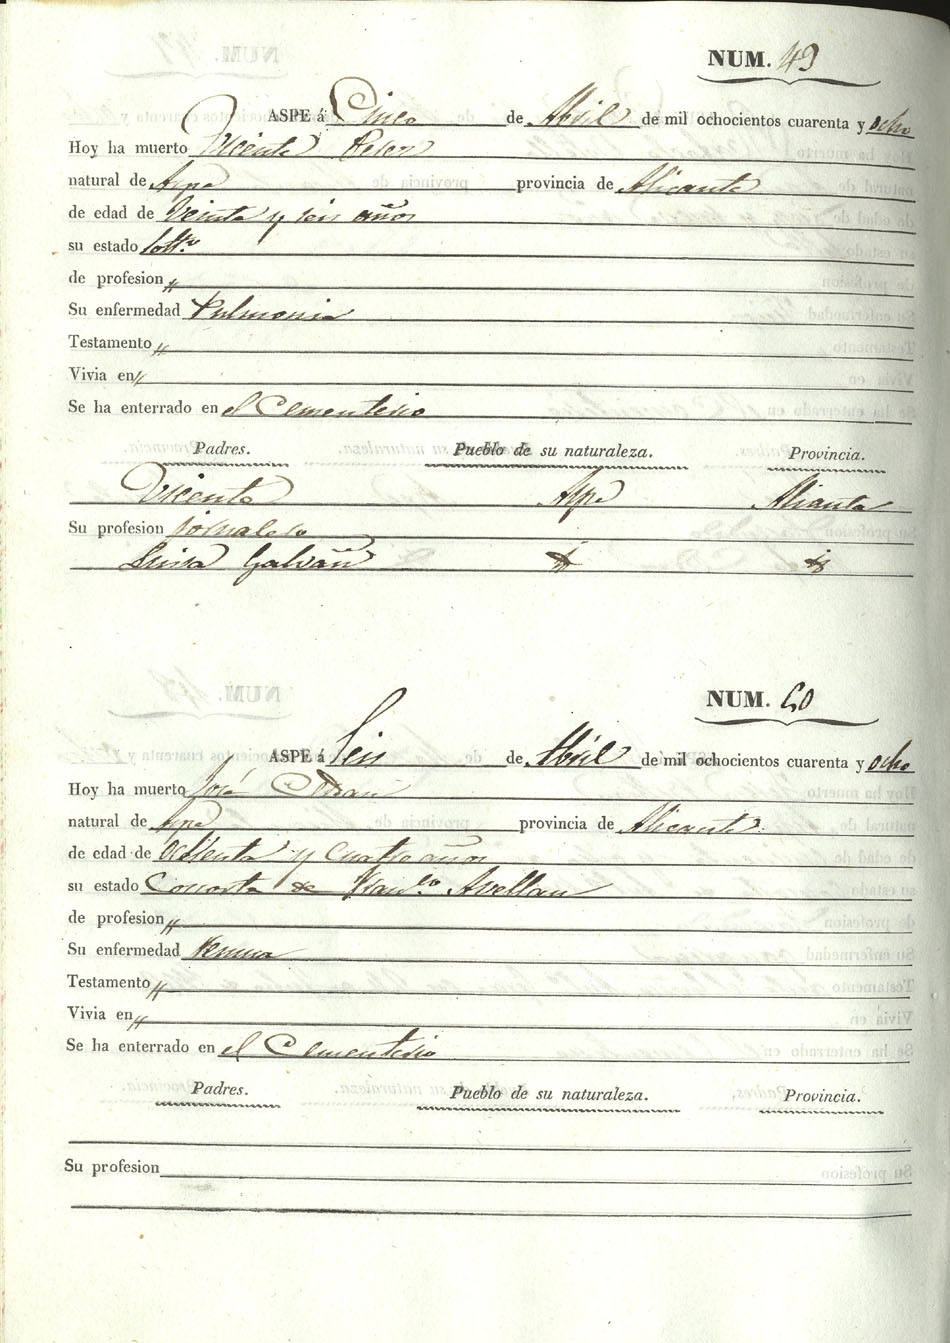 NUM. 49
ASPE á Cinco de Abril de mil ochocientos cuarenta y ocho
Hoy ha muerto Vicente Perez
natural de Aspe provincia de Alicante
de edad de Veinte y seis años
su estado Solto
de profesion „
Su enfermedad Pulmonia
Testamento „
Vivia en „
Se ha enterrado en el Cementerio
Padres. Pueblo de su naturaleza. Provincia.
Vicente Aspe Alicante
Su profesion jornalero
Luisa Galvañ
NUM. 50
ASPE á Seis de Abril de mil ochocientos cuarenta y ocho
Hoy ha muerto José
natural de Aspe provincia de Alicante
de edad de Ochenta y cuatro años
su estado Consorte de Avellan
de profesion „
Su enfermedad
Testamento „
Vivia en „
Se ha enterrado en el Cementerio
Padres. Pueblo de su naturaleza. Provincia.
Su profesion